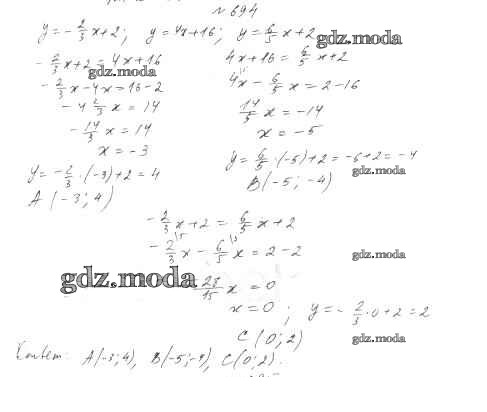 № 694
y = -2/3 x + 2; y = 4x + 16; y = 6/5 x + 2
gdz.moda
-2/3 x + 2 = 4x + 16
4x + 16 = 6/5 x + 2
gdz.moda
-2/3 x - 4x = 16 - 2
4x - 6/5 x = 2 - 16
-4 2/3 x = 14
14/5 x = -14
-14/3 x = 14
x = -5
x = -3
y = 6/5 · (-5) + 2 = -6 + 2 = -4
gdz.moda
y = -2/3 · (-3) + 2 = 4
B(-5; -4)
A(-3; 4)
-2/3 x + 2 = 6/5 x + 2
-2/3 x - 6/5 x = 2 - 2
gdz.moda
gdz.moda
28/15 x = 0
x = 0; y = -2/3 · 0 + 2 = 2
C(0; 2)
gdz.moda
A(-3; 4), B(-5; -4), C(0; 2).